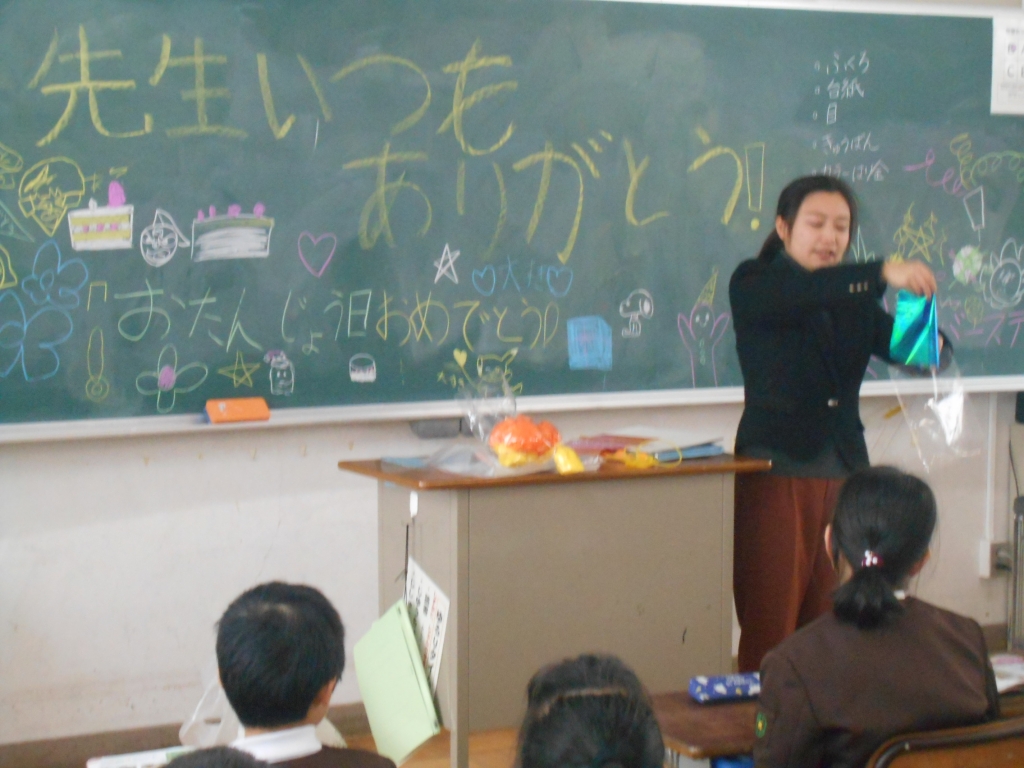 先生いつも
ありがとう!
おたんじょう日おめでとう!!
大好き
・ふくろ
・台紙
・目
・きょうばん